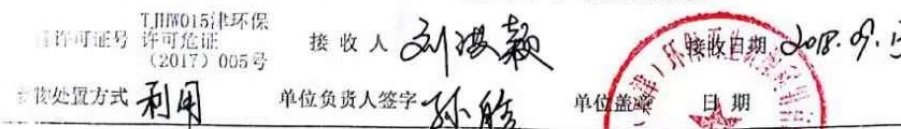 许可证号 TJHW015津环保许可危证（2017）005号 接收人 刘洪颖 接收日期 2018.09.
处置方式 利用 单位负责人签字 孙皓 单位盖章 日期